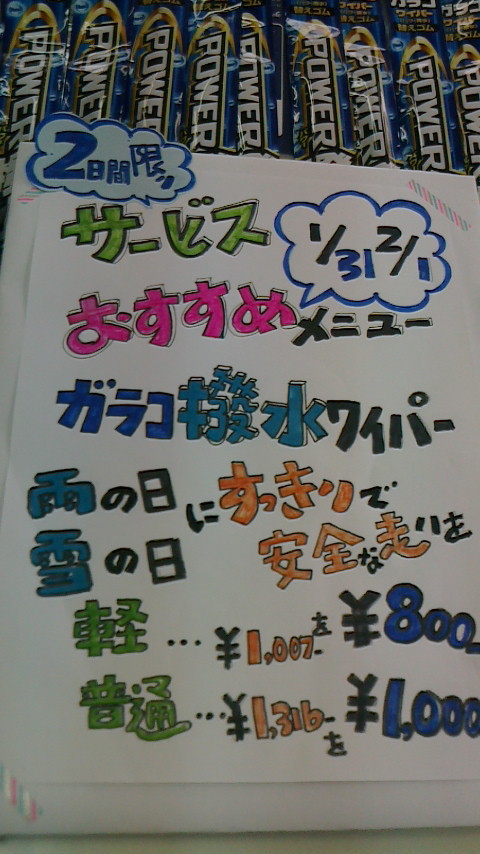 POWER POWER POWER POWER POWER POWER POWER POWER
2日間限り!!
サービス
1/31 2/1
おすすめメニュー
ガラコ撥水ワイパー
雨の日
雪の日
にすっきりで
安全な走りを
軽…¥1,007-を¥800-
普通…¥1,316-を¥1,000